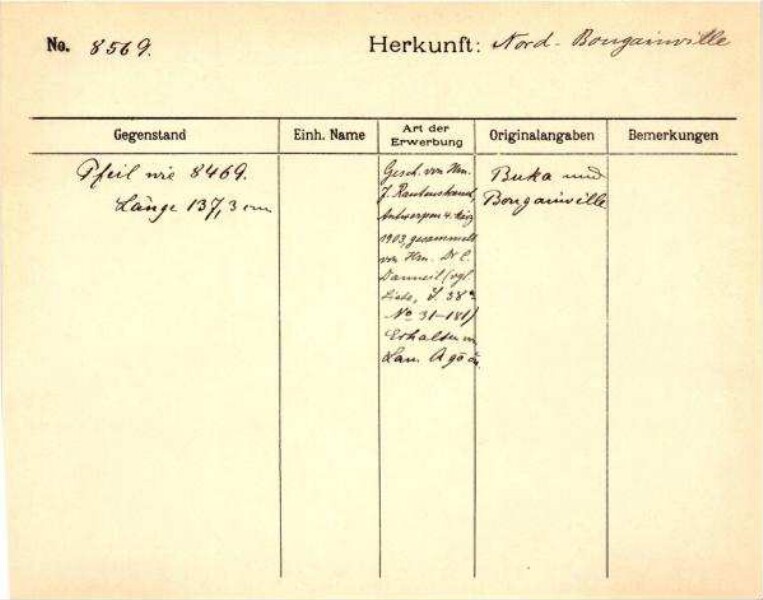 No. 8569. Herkunft: Nord-Bougainville
Gegenstand Einh. Name Art der Erwerbung Originalangaben Bemerkungen
Pfeil wie 8469.
Länge 137,3 cm
Gesch. von Hrn.
J. Rautenstrauch,
Antwerpen 4. März
1903, gesammelt
von Hrn. Dr C.
Danneil (vgl.
Liste, S. 38
No 31-181)
Erhalten in
Lau. Agā
Buka und
Bougainville